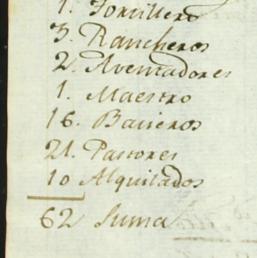 1. Tortillero
3. Rancheros
2. Aventadores
1. Maestro
16. Bacieros
21. Pastores
10 Alquilados
62 Suma